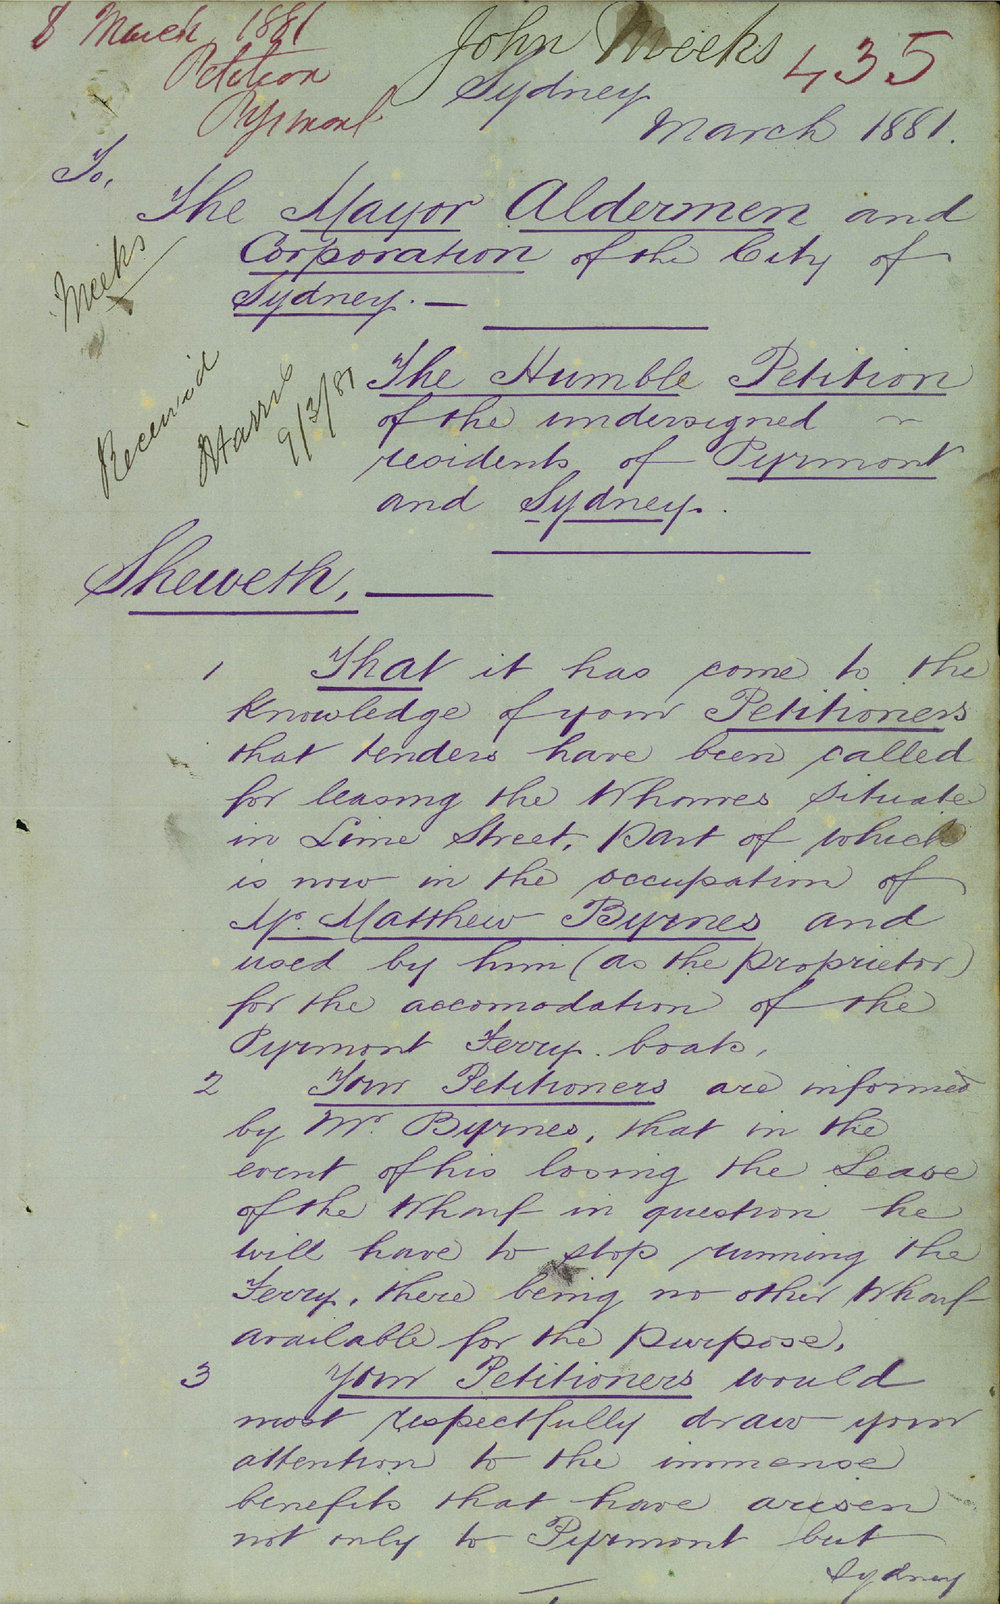 8 March 1881
Petition
Pyrmont
John Meeks
435
Sydney
March 1881.
To,
The Mayor Aldermen and
Corporation of the City of
Sydney. —
Meeks
Received
9/3/81
The Humble Petition
of the undersigned
residents of Pyrmont
and Sydney.
Sheweth,
1 That it has come to the
Knowledge of your Petitioners
that tenders have been called
for leasing the Wharves situate
in Lime Street, part of which
is now in the occupation of
Mr. Matthew Byrnes and
used by him (as the proprietor)
for the accomodation of the
Pyrmont Ferry boats,
2 Your Petitioners are informed
by Mr. Byrnes, that in the
event of his losing the Lease
of the Wharf in question he
will have to stop running the
Ferry, there being no other Wharf
available for the purpose.
3 Your Petitioners would
most respectfully draw your
attention to the immense
benefits that have arisen
not only to Pyrmont but
Sydney